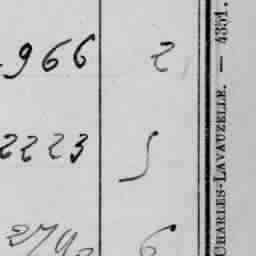 966 2
2223 5
6
CHARLES-LAVAUZELLE. — 4351.